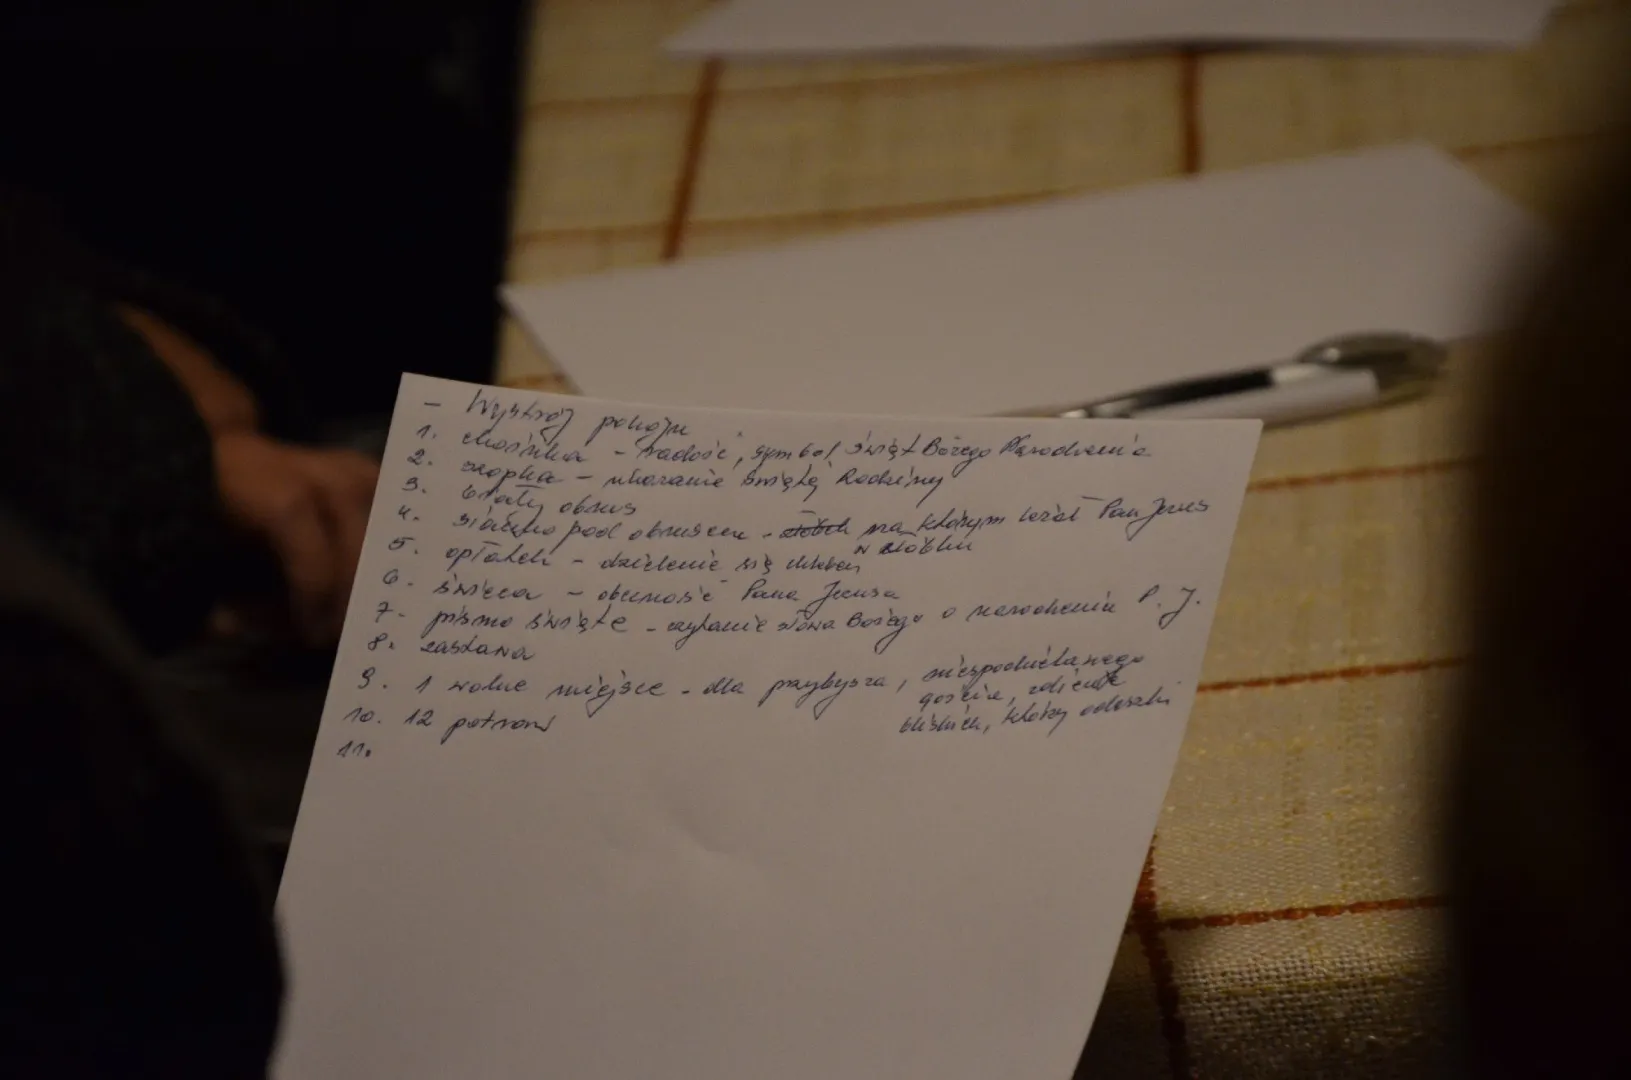 - Wystrój pokoju
1. choinka - radość, symbol Świąt Bożego Narodzenia
2. szopka - ukazanie Świętej Rodziny
3. biały obrus
4. sianko pod obrusem - żłobek na którym leżał Pan Jezus
w żłobku
5. opłatek - dzielenie się chlebem
6. świeca - obecność Pana Jezusa
7. pismo święte - czytanie słowa Bożego o narodzeniu P. J.
8. zastawa
9. 1 wolne miejsce - dla przybysza, niespodziewanego
gościa, zdjęcie
bliskich, którzy odeszli
10. 12 potraw
11.